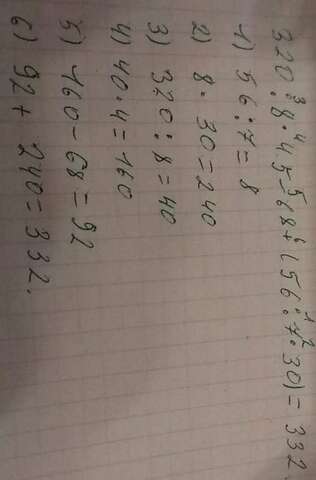 320 :³ 8 ·⁴ 4 -⁵ 68 +⁶ (56 :¹ 7 ·² 30) = 332.
1) 56 : 7 = 8
2) 8 · 30 = 240
3) 320 : 8 = 40
4) 40 · 4 = 160
5) 160 - 68 = 92
6) 92 + 240 = 332.